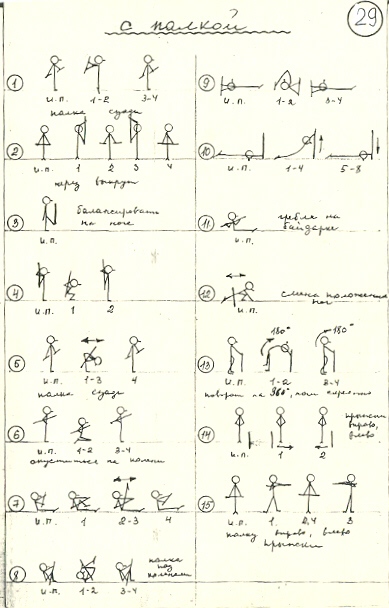 с палкой
29
1
и.п. 1-2 3-4
палка сзади
2
и.п. 1 2 3 4
3
балансировать
на ноге
и.п.
4
и.п. 1 2
5
и.п. 1-3 4
палка сзади
6
и.п. 1-2 3-4
опуститься на колени
7
и.п. 1 2-3 4
8
палка
под
коленями
и.п. 1-2 3-4
9
и.п. 1-2 3-4
10
и.п. 1-4 5-8
11
гребля на
байдарке
и.п.
12
смена положения
ног
и.п.
13
180° 180°
и.п. 1-2 3-4
поворот на 360°,
14
прыжки
вправо,
влево
и.п. 1 2
15
и.п. 1 2,4 3
палку вправо, влево
прыжки